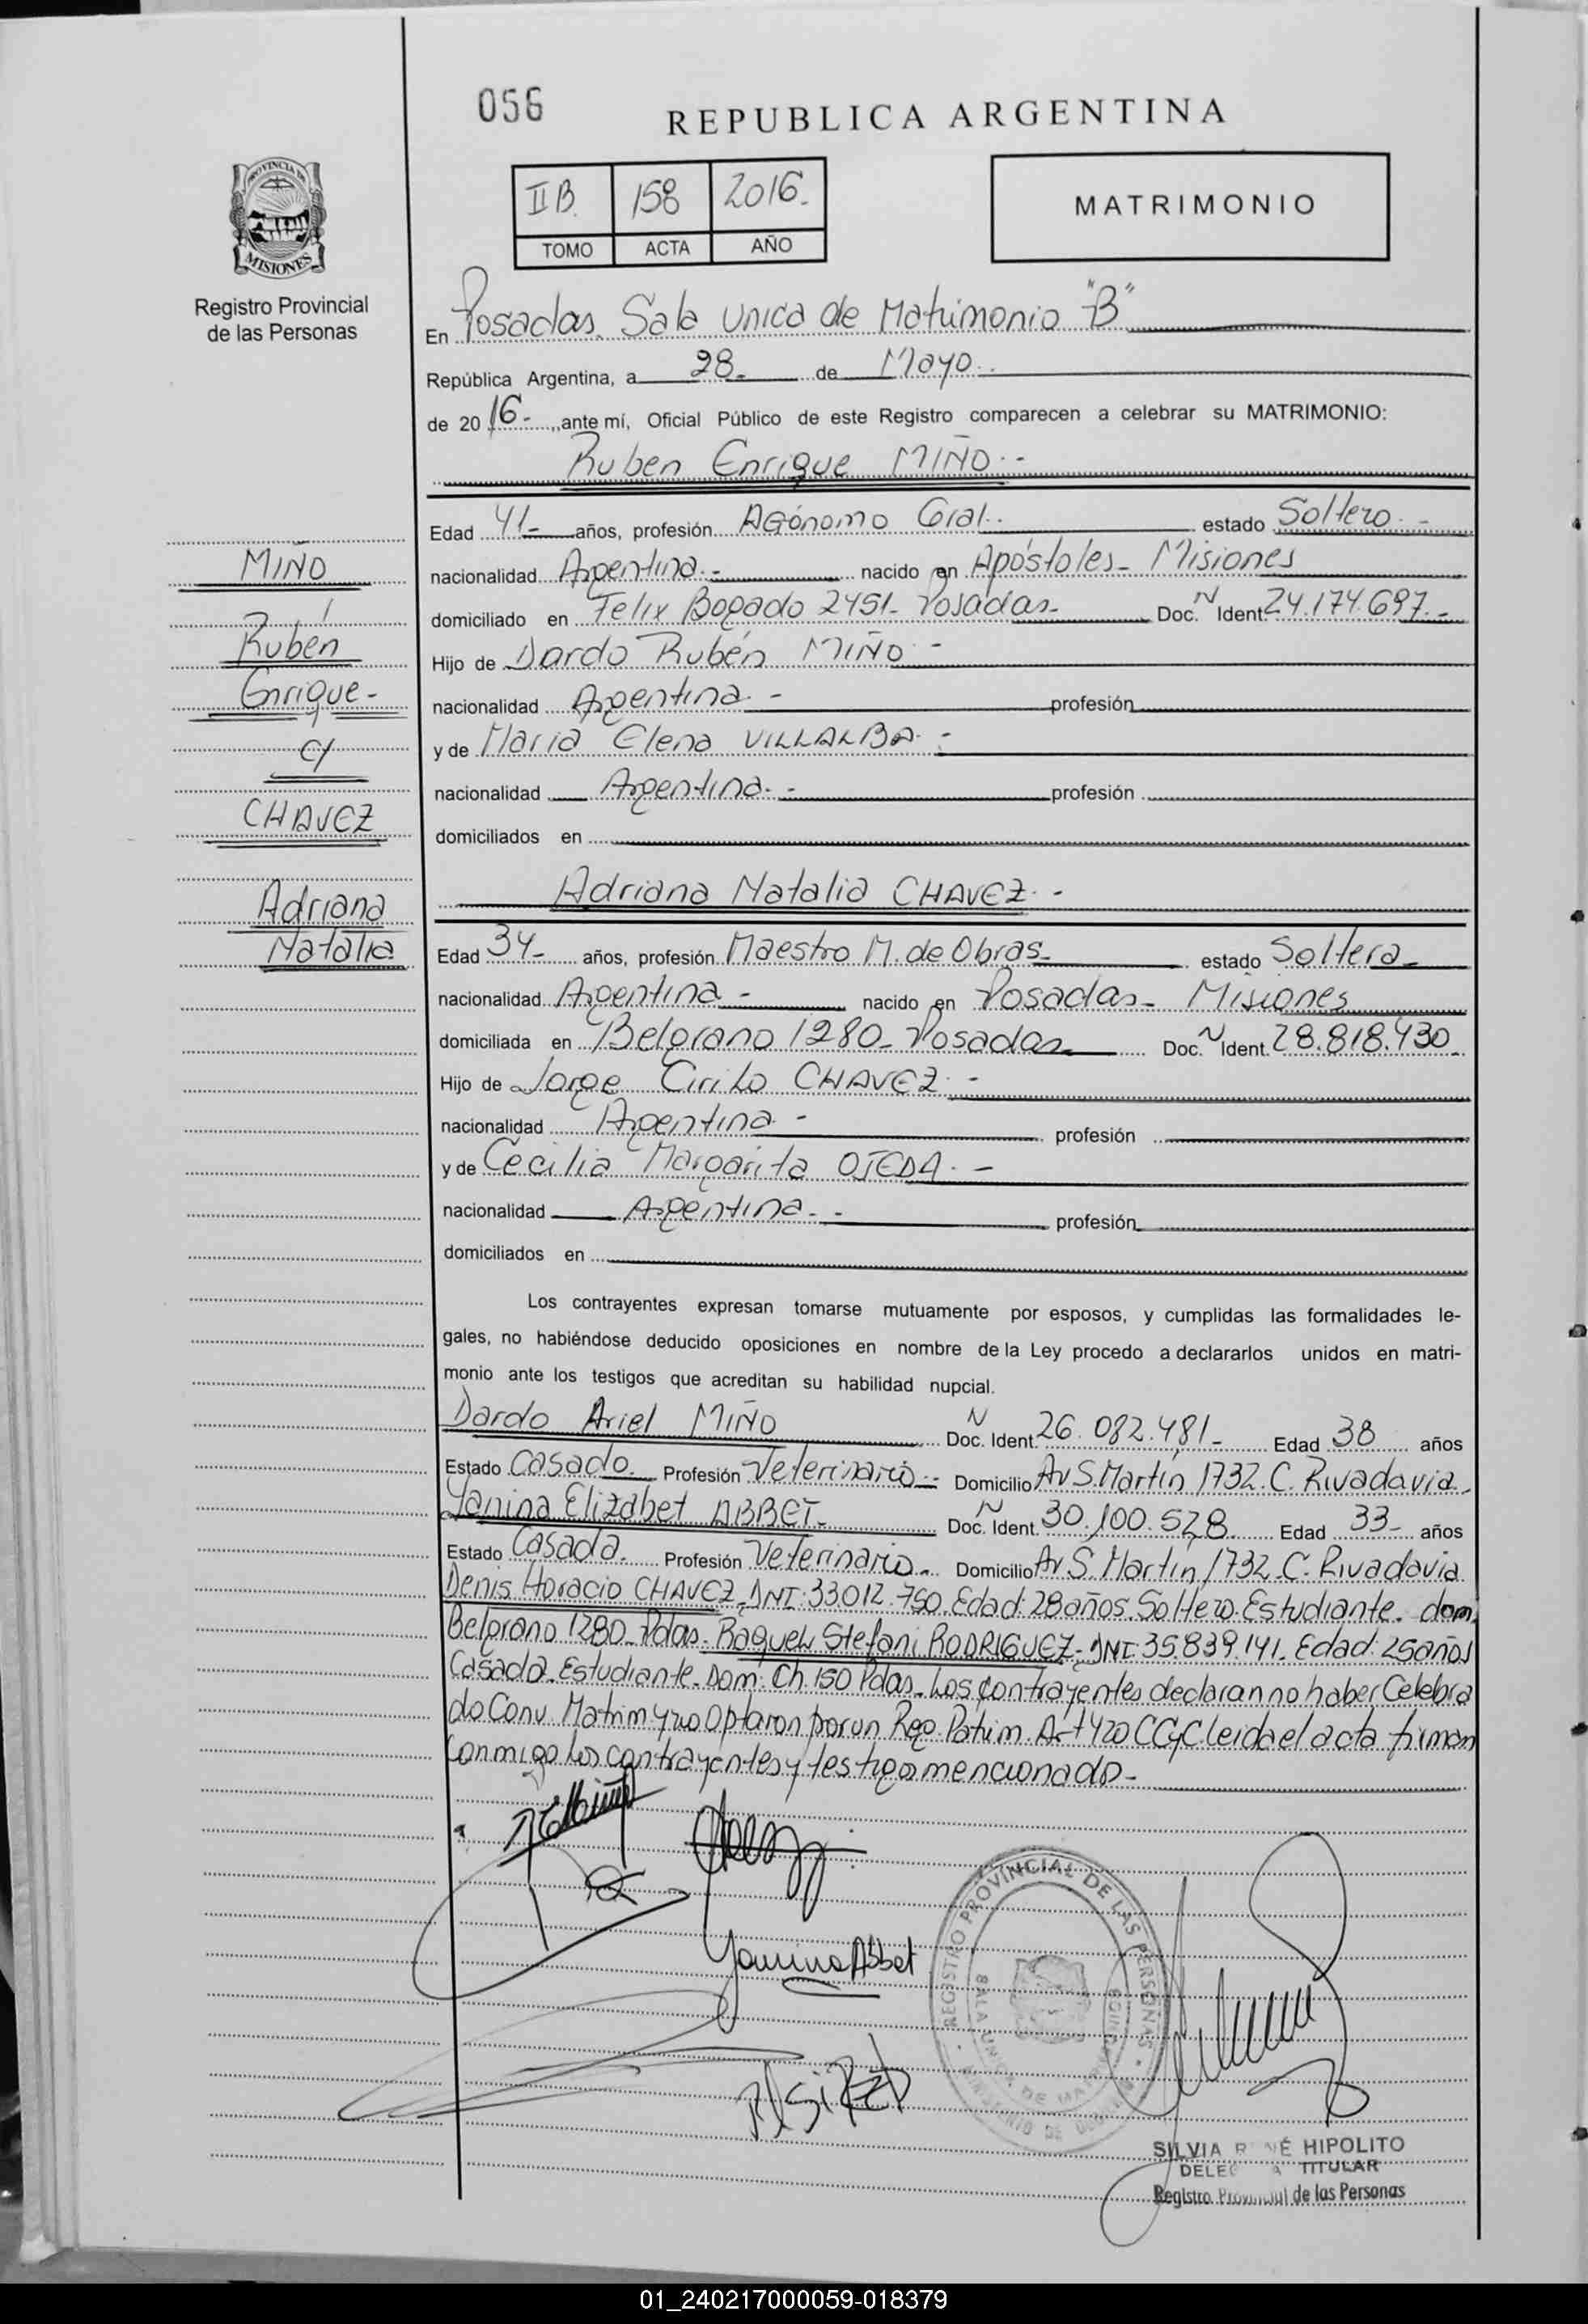 056
REPUBLICA ARGENTINA
PROVINCIA DE
MISIONES
Registro Provincial
de las Personas
II B. 158 2016.
TOMO ACTA AÑO
MATRIMONIO
En Posadas Sala Unica de Matrimonio "B"
República Argentina, a 28 de Mayo.
de 2016-, ante mí, Oficial Público de este Registro comparecen a celebrar su MATRIMONIO:
Ruben Enrique MIÑO.-
Edad 41- años, profesión Agónomo Gral. estado Soltero.-
nacionalidad Argentina.- nacido en Apóstoles- Misiones
domiciliado en Felix Bogado 2451- Posadas- Doc. N Ident. 24.174.697.-
Hijo de Dardo Rubén MIÑO.-
nacionalidad Argentina.- profesión
y de Maria Elena VILLALBA.-
nacionalidad Argentina.- profesión
domiciliados en
MIÑO
Rubén
Enrique-
c/
CHAVEZ
Adriana
Natalia
Adriana Natalia CHAVEZ.-
Edad 34- años, profesión Maestro M. de Obras- estado Soltera-
nacionalidad Argentina- nacido en Posadas- Misiones
domiciliada en Belgrano 1280- Posadas Doc. N Ident. 28.818.430
Hijo de Jorge Cirilo CHAVEZ.-
nacionalidad Argentina- profesión
y de Cecilia Margarita OJEDA.-
nacionalidad Argentina.- profesión
domiciliados en
Los contrayentes expresan tomarse mutuamente por esposos, y cumplidas las formalidades le-
gales, no habiéndose deducido oposiciones en nombre de la Ley procedo a declararlos unidos en matri-
monio ante los testigos que acreditan su habilidad nupcial.
Dardo Ariel MIÑO Doc. N Ident. 26.082.481- Edad 38 años
Estado Casado. Profesión Veterinario- Domicilio Av S. Martín 1732. C. Rivadavia.
Yanina Elizabet ABBET- Doc. N Ident. 30.100.578. Edad 33- años
Estado Casada. Profesión Veterinario- Domicilio Av S. Martin 1732. C. Rivadavia
Denis Horacio CHAVEZ- DNI: 33.012.750. Edad: 28 años. Soltero. Estudiante. dom.
Belgrano 1280- Pdas- Raquel Stefani RODRIGUEZ- DNI: 35.839.141. Edad: 25 años
Casada. Estudiante. Dom: Ch. 150 Pdas- Los contrayentes declaran no haber Celebra
do Conv. Matrim y no Optaron por un Reg. Patrim. Art 420 CCyC leida el acta firman
conmigo los contrayentes y testigos mencionado-
Yanina Abbet
REGISTRO PROVINCIAL DE LAS PERSONAS
SALA UNICA DE MATRIMONIOS
SILVIA HIPOLITO
TITULAR
Registro Provincial de las Personas
01_240217000059-018379